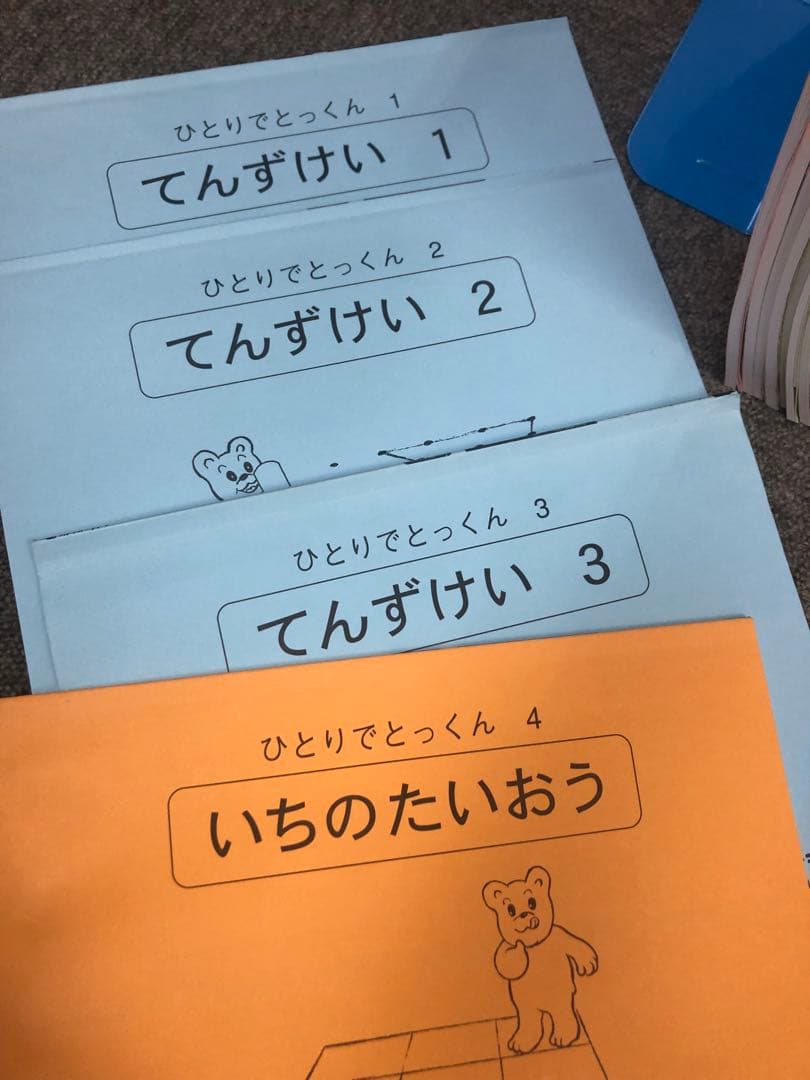 ひとりでとっくん 1
てんずけい 1
ひとりでとっくん 2
てんずけい 2
ひとりでとっくん 3
てんずけい 3
ひとりでとっくん 4
いちのたいおう